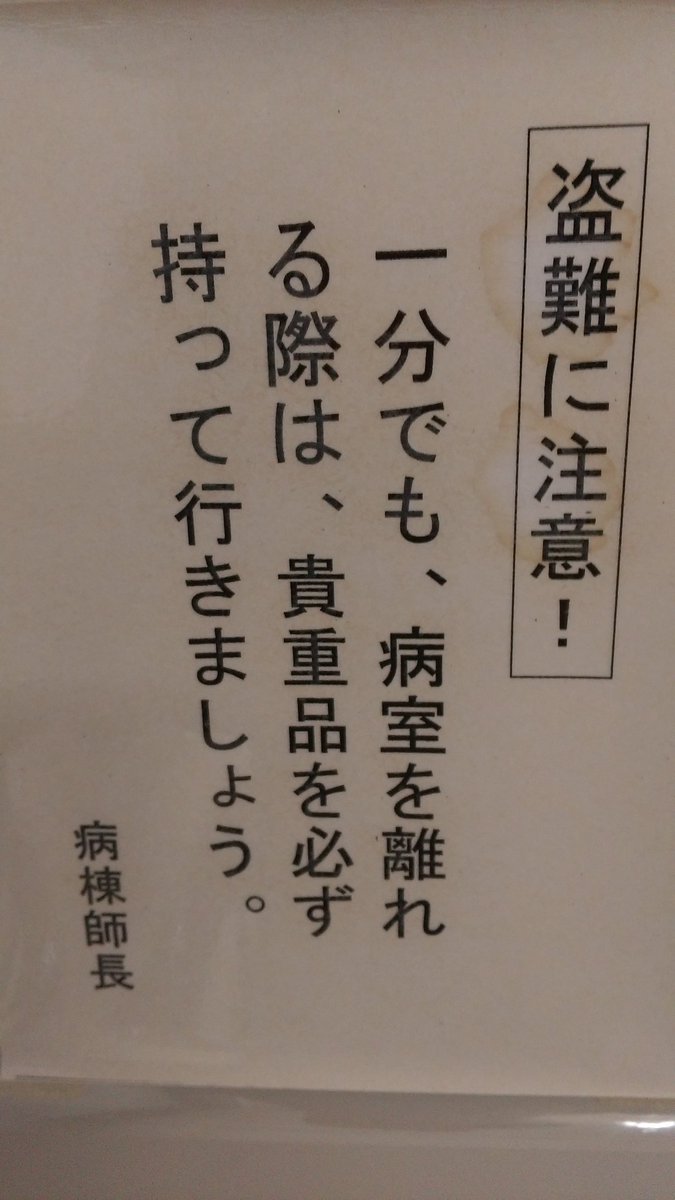 盗難に注意！
一分でも、病室を離れ
る際は、貴重品を必ず
持って行きましょう。
病棟師長